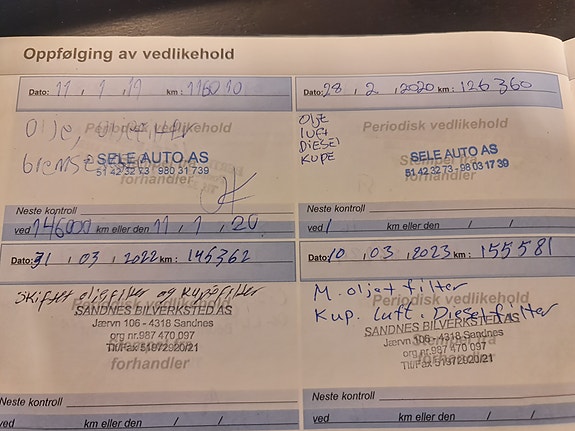 Oppfølging av vedlikehold
Dato: 11 / 1 / 19 km: 116010
Periodisk vedlikehold
Olje,
bremse
SELE AUTO AS
51 42 32 73 - 980 31 739
forhandler
Neste kontroll
ved 146000 km eller den 11 / 1 / 20.
Dato: 28 / 2 / 2020 km: 126360
OLJE
LUFT
DIESEL
KUPE
Periodisk vedlikehold
SELE AUTO AS
51 42 32 73 - 98 03 17 39
forhandler
Neste kontroll
ved / km eller den / /
Dato: 31 / 03 / 2022 km: 145362
Skiftet oljefilter og kupefilter
SANDNES BILVERKSTED AS
Jærvn 106 - 4318 Sandnes
org nr.987 470 097
Tlf/Fax 51972920/21
forhandler
Neste kontroll
ved km eller den / /
Dato: 10 / 03 / 2023 km: 155581
M. olje+filter
Periodisk vedlikehold
Kup. Luft. Dieselfilter
SANDNES BILVERKSTED AS
Jærvn 106 - 4318 Sandnes
org nr.987 470 097
Tlf/Fax 51972920/21
forhandler
Neste kontroll
ved km eller den / /